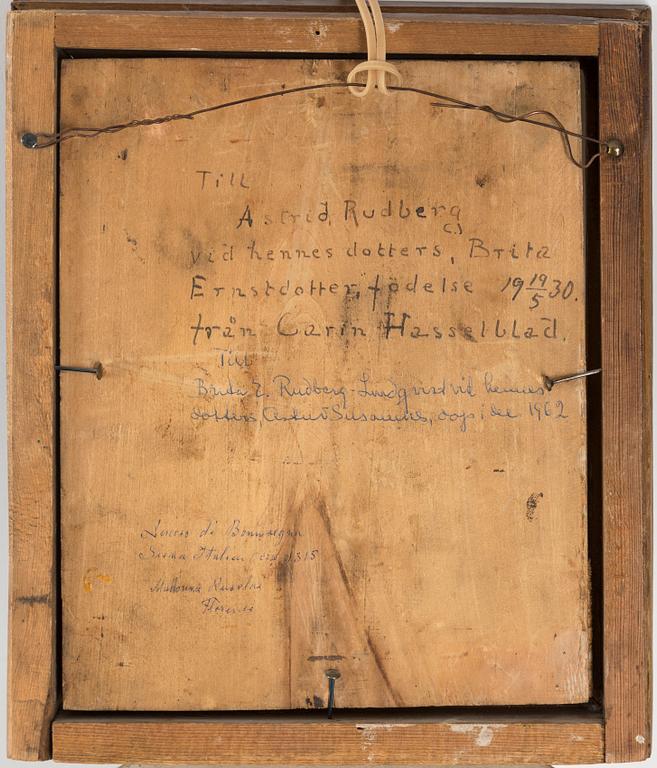 Till
Astrid Rudberg
(.)
vid hennes dotters, Brita
Ernstdotter, födelse 19 19/5 30.
från Carin Hasselblad.
Till
Brita E. Rudberg-Lundqvist vid hennes
dotters, Astrid Susannes, dop i dec 1962
di
Siena Italien 1315
Madonna
Florence